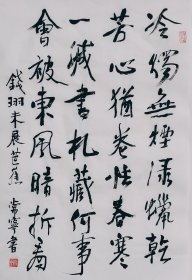 冷燭無煙淥蠟乾
芳心猶卷怯春寒
一緘書札藏何事
會被東風暗拆看
錢珝未展芭蕉
常寧書